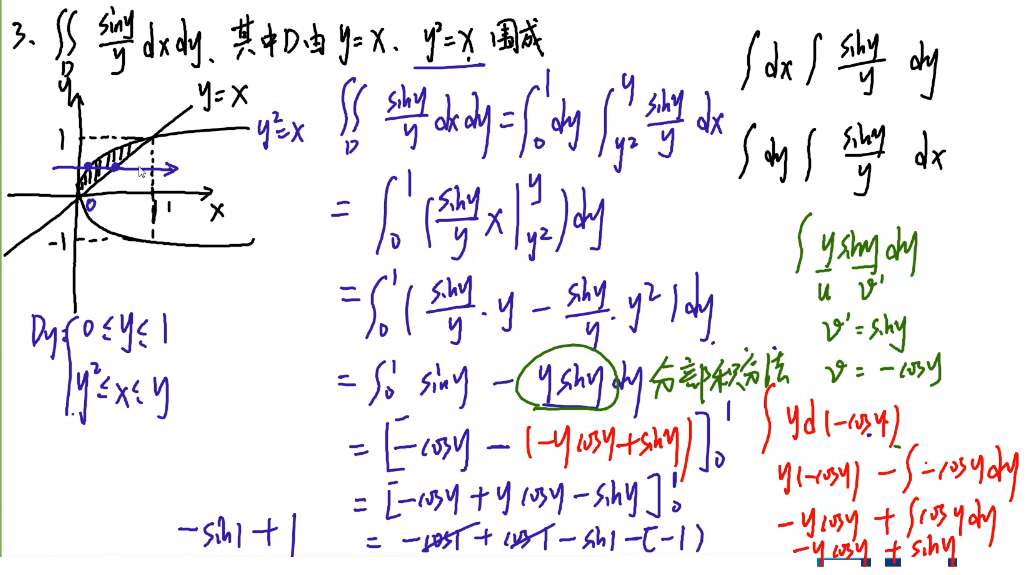 3、∬_D siny/y dxdy、其中D由 y=x、y²=x 围成
y
y=x
1
y²=x
0
1
x
-1
Dy: { 0≤y≤1
y²≤x≤y
∬_D siny/y dxdy = ∫_0^1 dy ∫_{y²}^{y} siny/y dx
= ∫_0^1 ( siny/y x |_{y²}^{y} ) dy
= ∫_0^1 ( siny/y · y - siny/y · y² ) dy
= ∫_0^1 siny - ysiny dy 分部积分法
= [ -cosy - (-ycosy+siny) ]_0^1
= [ -cosy + ycosy - siny ]_0^1
= -cos1 + cos1 - sin1 - (-1)
-sin1 + 1
∫ dx ∫ siny/y dy
∫ dy ∫ siny/y dx
∫ ysiny dy
u v'
v' = siny
v = -cosy
∫ y d(-cosy)
y(-cosy) - ∫ -cosy dy
-ycosy + ∫ cosy dy
-ycosy + siny